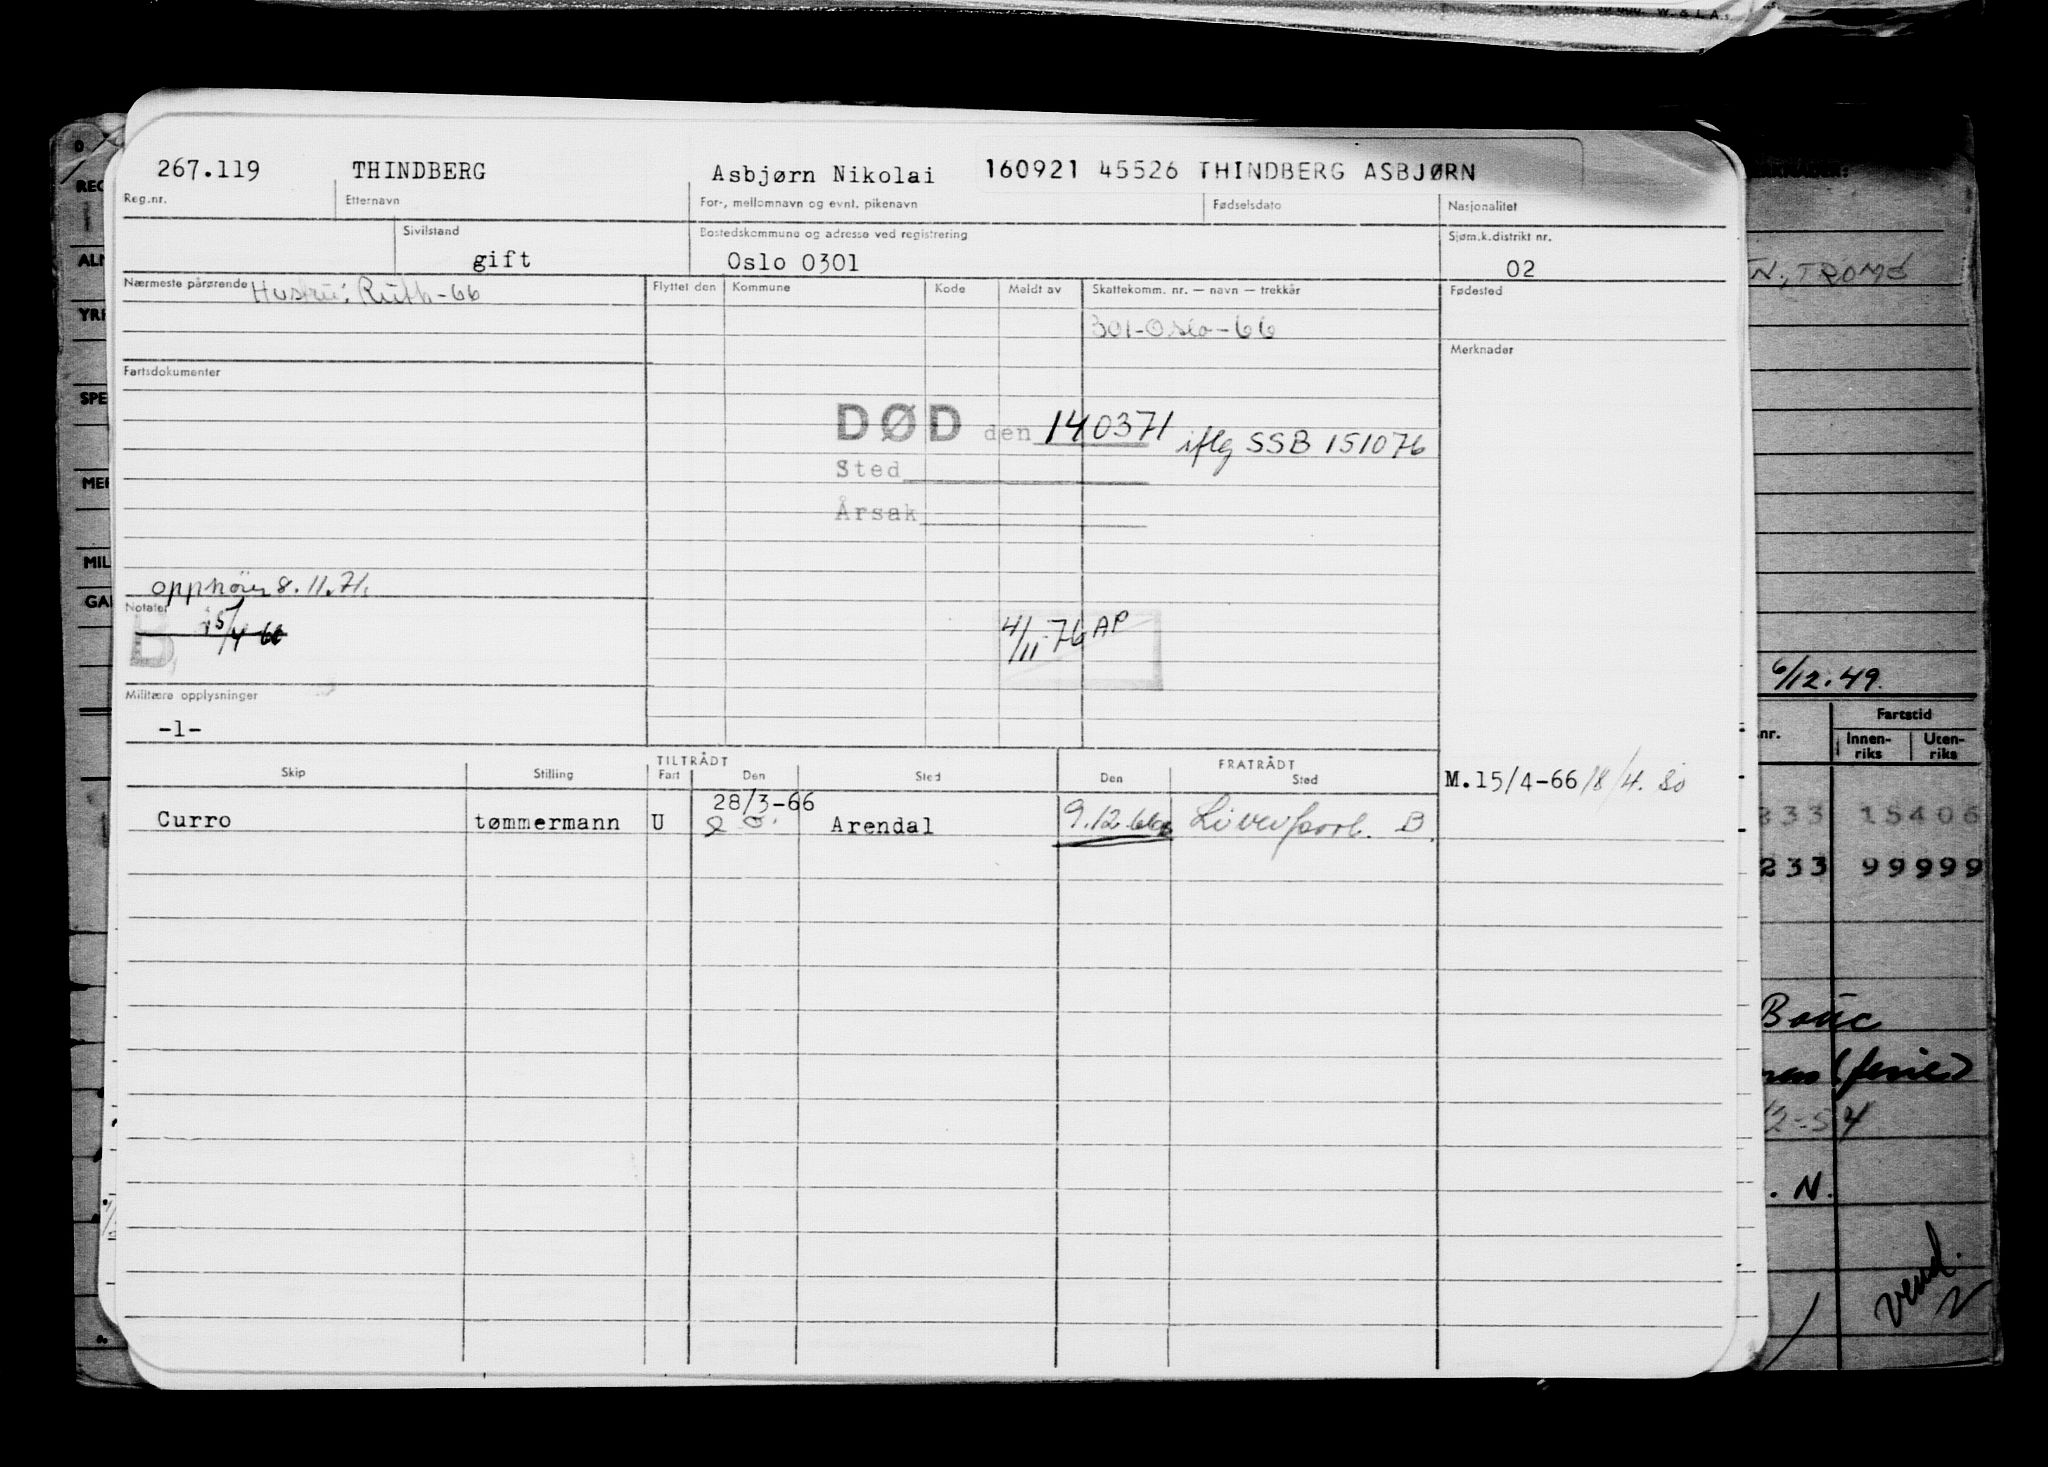 W. & L.A.
267.119 THINDBERG Asbjørn Nikolai 160921 45526 THINDBERG ASBJØRN
Reg.nr. Etternavn For-, mellomnavn og evnt. pikenavn Fødselsdato Nasjonalitet
Sivilstand Bostedskommune og adresse ved registrering Sjøm.k.distrikt nr.
gift Oslo 0301 02
Nærmeste pårørende Hustru: Ruth-66 Flyttet den Kommune Kode Meldt av Skattekomm. nr. — navn — trekkår Fødested
301-Oslo-66
Merknader
Fartsdokumenter
DØD den 140371 iflg SSB 151076
Sted
Årsak
opphører 8.11.71.
Notater
B 15/4 66
4/11-76 AP
Militære opplysninger
-1-
TILTRÅDT FRATRÅDT
Skip Stilling Fart Den Sted Den Sted
M.15/4-66 18/4.
28/3-66
Curro tømmermann U Arendal 9.12.66 Liverpool. B.
REG
ALM
YRK
SPE
MER
MIL
GAN
N, TROMØ
6/12.49.
Fartstid
nr. Innen-riks Uten-riks
233 15406
233 99999
Bouc
(ferie)
12-54
. N.
vend